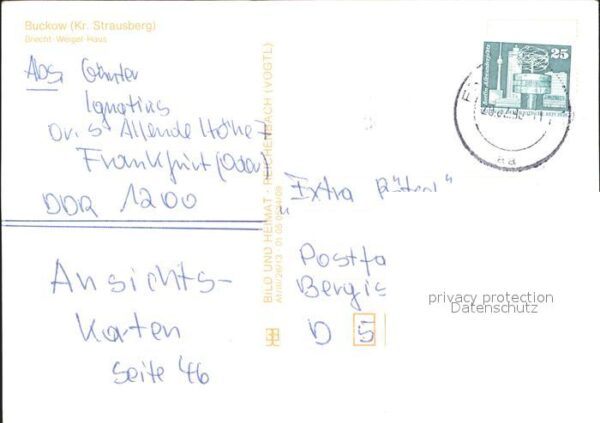 Buckow (Kr. Strausberg)
Brecht-Weigel-Haus
Abs. Günter
Ignatius
Dr. S. Allende Höhe 7
Frankfurt (Oder)
DDR 1200
Ansichts-
Karten
Seite 46
BILD UND HEIMAT · REICHENBACH (VOGTL)
25
"Extra Rätsel"
Postfa
Bergis
D 5
privacy protection
Datenschutz